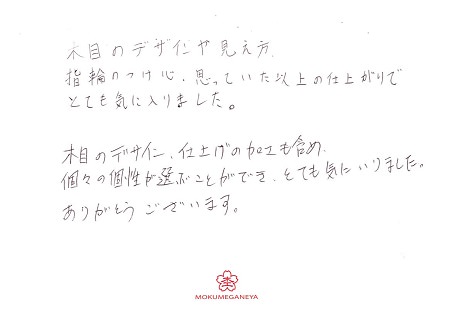 木目のデザインや見え方、
指輪のつけ心、思っていた以上の仕上がりで
とても気に入りました。
木目のデザイン、仕上げの加工も含め、
個々の個性が選ぶことができ、とても気にいりました。
ありがとうございます。
MOKUMEGANEYA